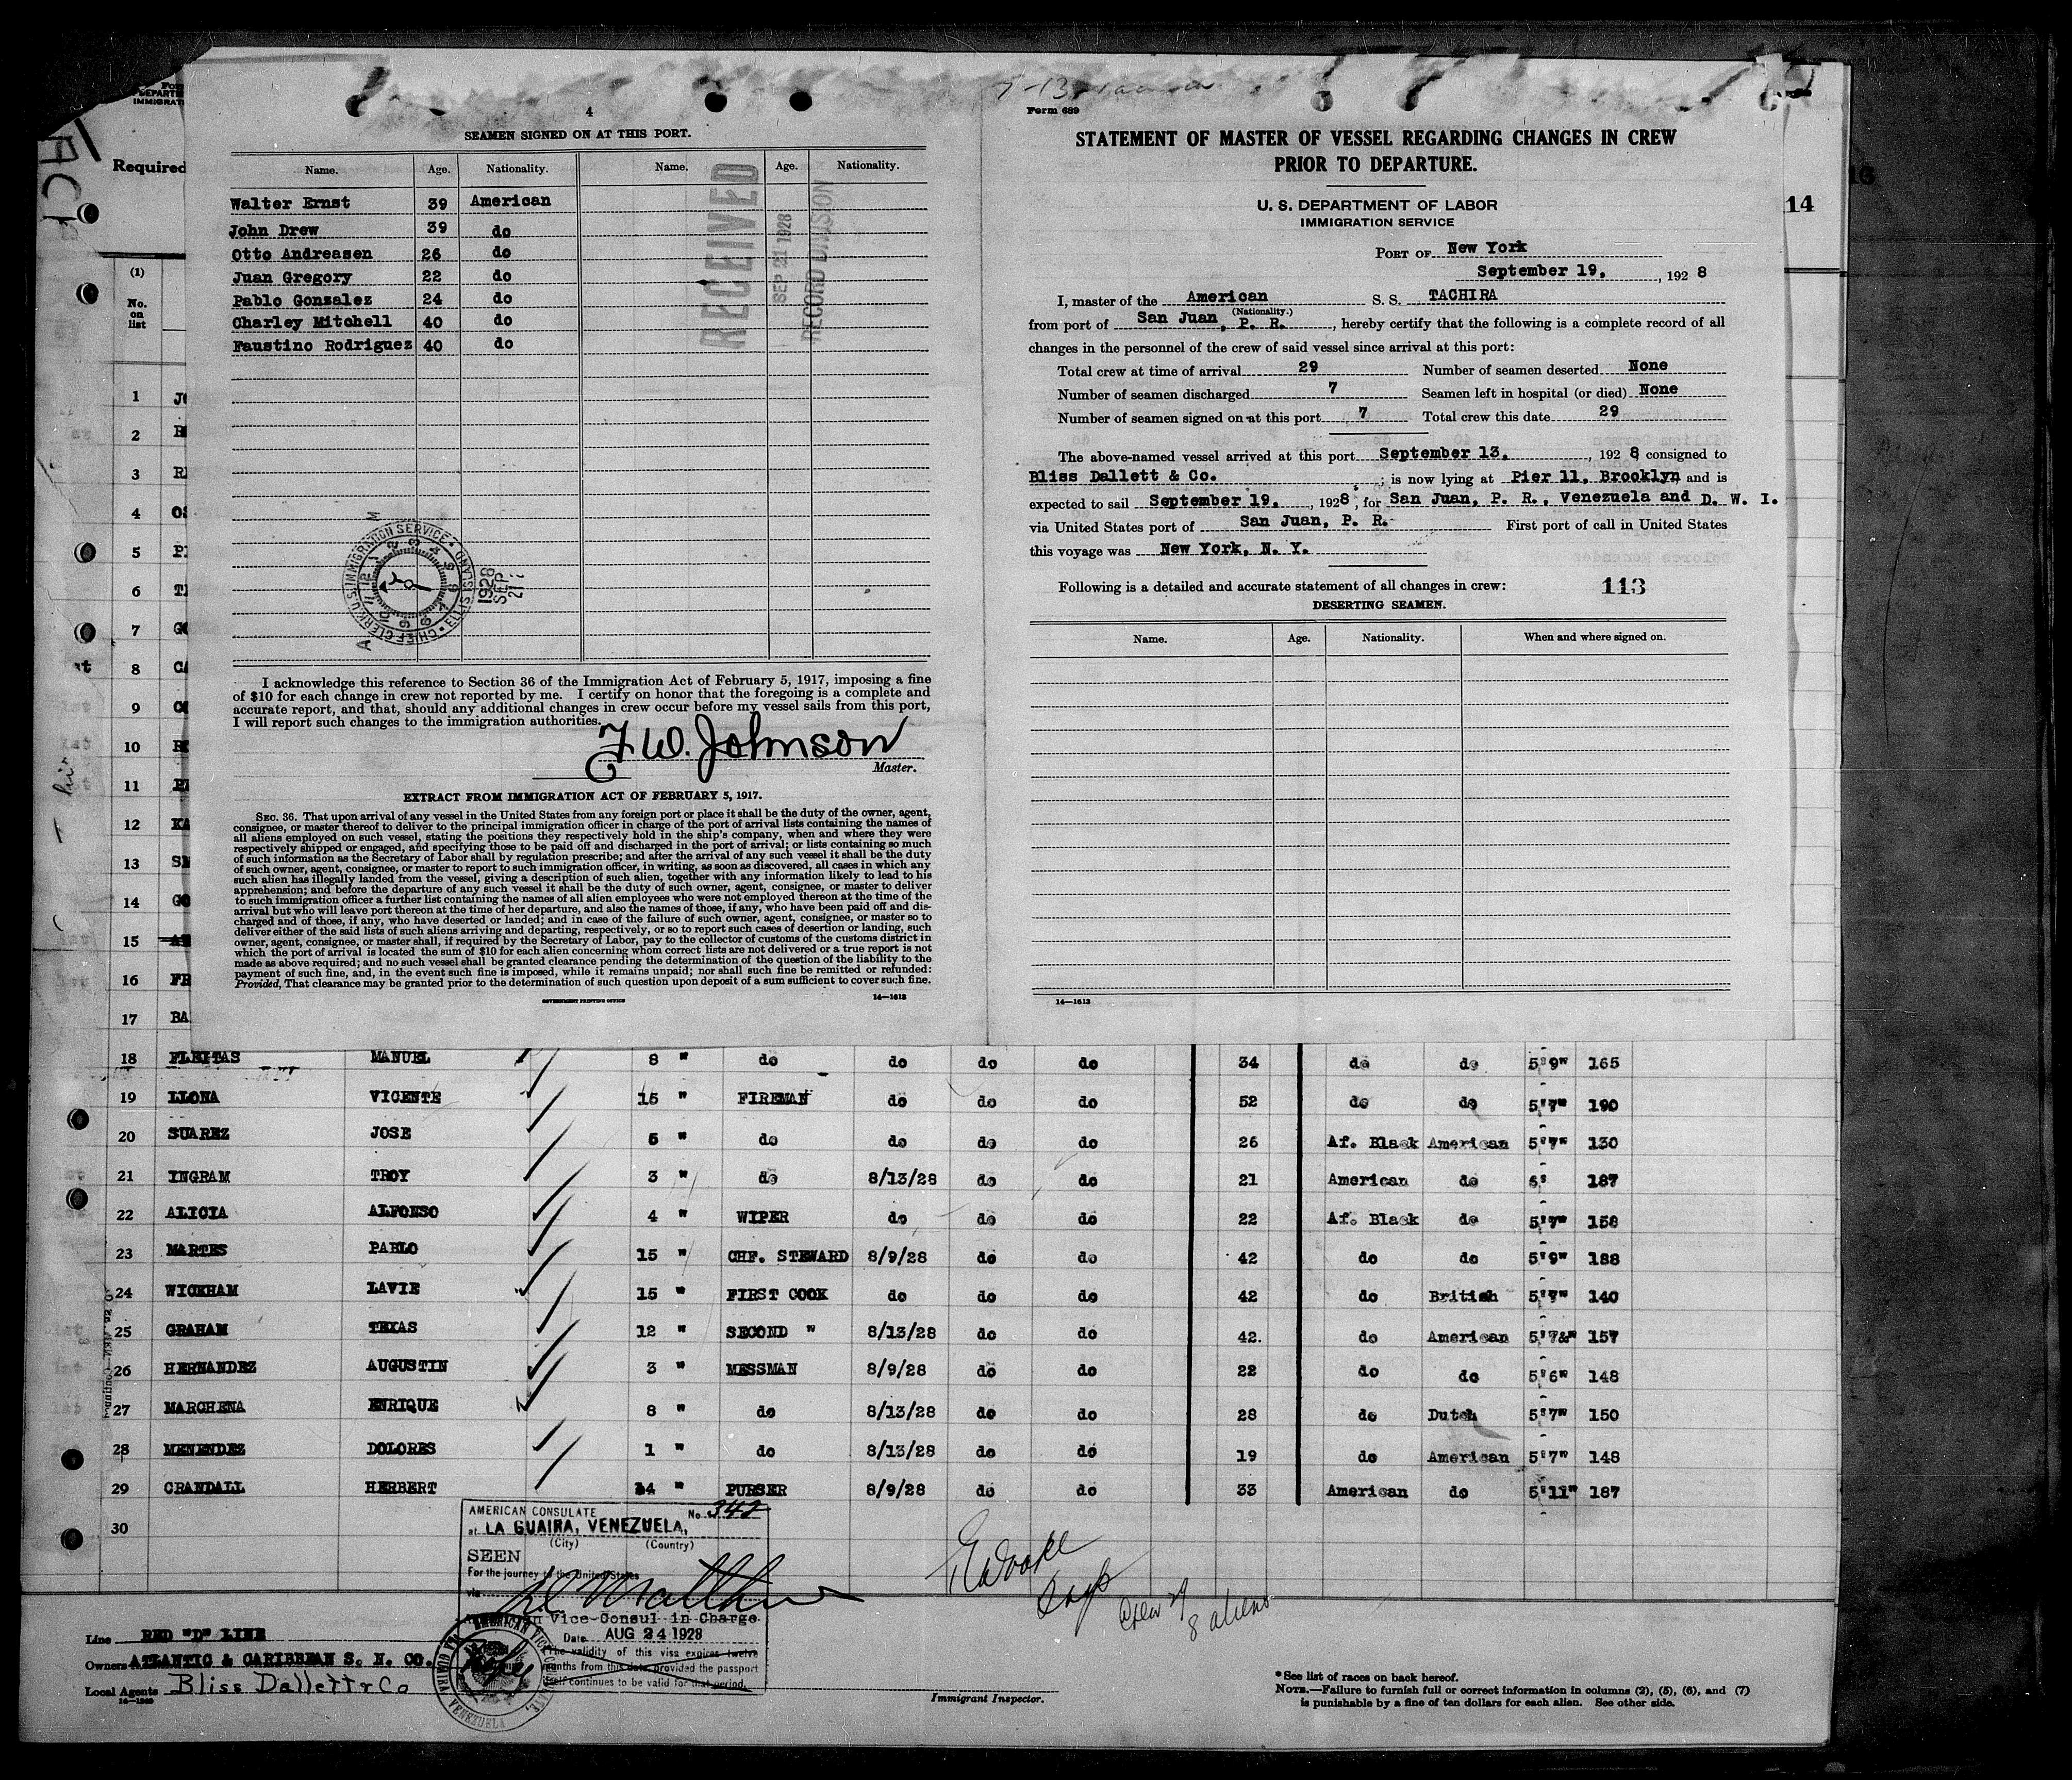 4
SEAMEN SIGNED ON AT THIS PORT.
Name. Age. Nationality. Name. Age. Nationality.
Walter Ernst 39 American
John Drew 39 do
Otto Andreasen 26 do
Juan Gregory 22 do
Pablo Gonsalez 24 do
Charley Mitchell 40 do
Faustino Rodriguez 40 do
RECEIVED
SEP 21 1928
RECORD DIVISION
CHIEF CLERK U.S. IMMIGRATION SERVICE • ELLIS ISLAND
1928
SEP
21
I acknowledge this reference to Section 36 of the Immigration Act of February 5, 1917, imposing a fine
of $10 for each change in crew not reported by me. I certify on honor that the foregoing is a complete and
accurate report, and that, should any additional changes in crew occur before my vessel sails from this port,
I will report such changes to the immigration authorities.
F W. Johnson
Master.
EXTRACT FROM IMMIGRATION ACT OF FEBRUARY 5, 1917.
SEC. 36. That upon arrival of any vessel in the United States from any foreign port or place it shall be the duty of the owner, agent,
consignee, or master thereof to deliver to the principal immigration officer in charge of the port of arrival lists containing the names of
all aliens employed on such vessel, stating the positions they respectively hold in the ship's company, when and where they were
respectively shipped or engaged, and specifying those to be paid off and discharged in the port of arrival; or lists containing so much
of such information as the Secretary of Labor shall by regulation prescribe; and after the arrival of any such vessel it shall be the duty
of such owner, agent, consignee, or master to report to such immigration officer, in writing, as soon as discovered, all cases in which any
such alien has illegally landed from the vessel, giving a description of such alien, together with any information likely to lead to his
apprehension; and before the departure of any such vessel it shall be the duty of such owner, agent, consignee, or master to deliver
to such immigration officer a further list containing the names of all alien employees who were not employed thereon at the time of the
arrival but who will leave port thereon at the time of her departure, and also the names of those, if any, who have been paid off and dis-
charged and of those, if any, who have deserted or landed; and in case of the failure of such owner, agent, consignee, or master so to
deliver either of the said lists of such aliens arriving and departing, respectively, or so to report such cases of desertion or landing, such
owner, agent, consignee, or master shall, if required by the Secretary of Labor, pay to the collector of customs of the customs district in
which the port of arrival is located the sum of $10 for each alien concerning whom correct lists are not delivered or a true report is not
made as above required; and no such vessel shall be granted clearance pending the determination of the question of the liability to the
payment of such fine, and, in the event such fine is imposed, while it remains unpaid; nor shall such fine be remitted or refunded:
Provided, That clearance may be granted prior to the determination of such question upon deposit of a sum sufficient to cover such fine.
GOVERNMENT PRINTING OFFICE 14—1613
Form 689
STATEMENT OF MASTER OF VESSEL REGARDING CHANGES IN CREW
PRIOR TO DEPARTURE.
U. S. DEPARTMENT OF LABOR
IMMIGRATION SERVICE
PORT OF New York
September 19, , 192 8
I, master of the American S. S. TACHIRA
(Nationality.)
from port of San Juan, P. R. , hereby certify that the following is a complete record of all
changes in the personnel of the crew of said vessel since arrival at this port:
Total crew at time of arrival 29 Number of seamen deserted None
Number of seamen discharged 7 Seamen left in hospital (or died) None
Number of seamen signed on at this port 7 Total crew this date 29
The above-named vessel arrived at this port September 13, , 192 8 consigned to
Bliss Dallett & Co. ; is now lying at Pier 11, Brooklyn and is
expected to sail September 19, , 1928, for San Juan, P. R., Venezuela and D. W. I.
via United States port of San Juan, P. R. First port of call in United States
this voyage was New York, N. Y.
Following is a detailed and accurate statement of all changes in crew: 113
DESERTING SEAMEN.
Name. Age. Nationality. When and where signed on.
14—1613
14
16
Required
(1)
No.
on
list
1
2
3
4
5
6
7
8
9
10
11
12
13
14
15
16
17 BA
18 FLEITAS MANUEL 8 " do do do do 34 do do 5'9" 165
19 LLONA VICENTE 15 " FIREMAN do do do 52 do do 5'7" 190
20 SUAREZ JOSE 5 " do do do do 26 Af. Black American 5'7" 130
21 INGRAM TROY 3 " do 8/13/28 do do 21 American do 6' 187
22 ALICIA ALFONSO 4 " WIPER do do do 22 Af. Black do 5'7" 158
23 MARTES PABLO 15 " CHF. STEWARD 8/9/28 do do 42 do do 5'9" 188
24 WICKHAM LAVIE 15 " FIRST COOK do do do 42 do British 5'7" 140
25 GRAHAM TEXAS 12 " SECOND " 8/13/28 do do 42. do American 5'7&" 157
26 HERNANDEZ AUGUSTIN 3 " MESSMAN 8/9/28 do do 22 do do 5'6" 148
27 MARCHENA ENRIQUE 8 " do 8/13/28 do do 28 do Dutch 5'7" 150
28 MENENDEZ DOLORES 1 " do 8/13/28 do do 19 do American 5'7" 148
29 CRANDALL HERBERT 14 " PURSER 8/9/28 do do 33 American do 5'11" 187
30
AMERICAN CONSULATE No. 342
at LA GUAIRA, VENEZUELA,
(City) (Country)
SEEN
For the journey to the United States
via
American Vice-Consul in Charge
Date AUG 24 1928
The validity of this visa expires twelve
months from this date, provided the passport
itself continues to be valid for that period.
Crew 29
8 aliens
Line RED "D" LINE
Owners ATLANTIC & CARIBBEAN S. N. CO.
Local Agents Bliss Dallett & Co
Immigrant Inspector.
*See list of races on back hereof.
NOTE.—Failure to furnish full or correct information in columns (2), (5), (6), and (7)
is punishable by a fine of ten dollars for each alien. See other side.